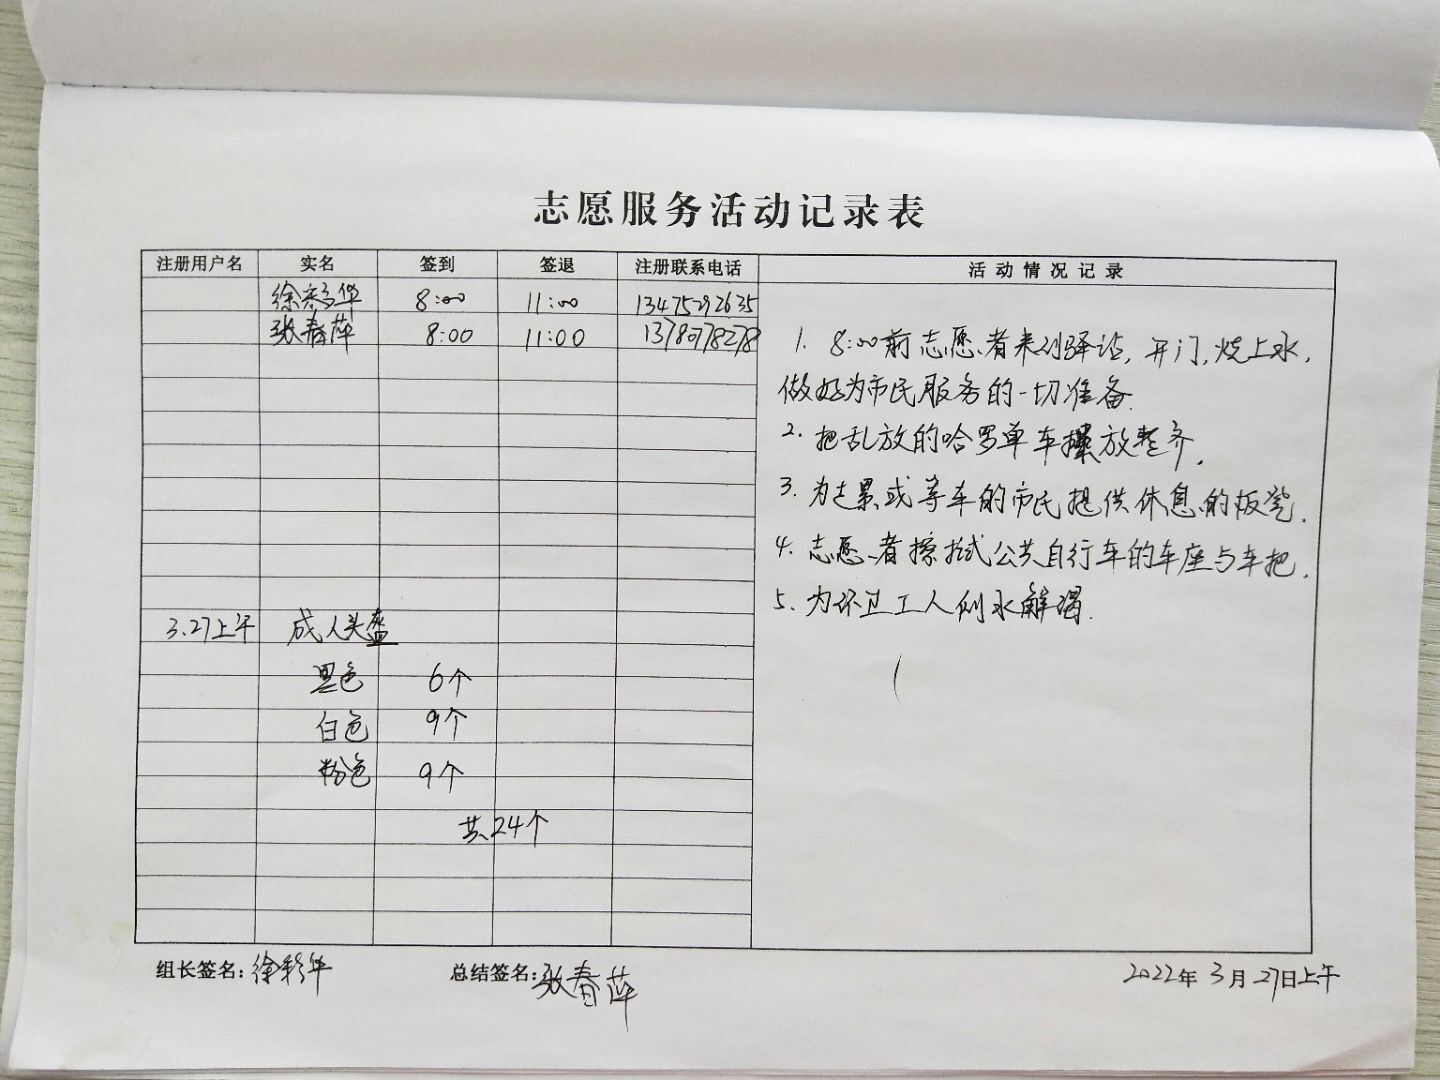 志愿服务活动记录表
注册用户名 实名 签到 签退 注册联系电话 活动情况记录
徐彩华 8:00 11:00 13475292635
张春萍 8:00 11:00 13780778278
1. 8:00前志愿者来到驿站,开门,烧上水,
做好为市民服务的一切准备.
2. 把乱放的哈罗单车摆放整齐.
3. 为走累或等车的市民提供休息的板凳.
4. 志愿者擦拭公共自行车的车座与车把.
5. 为环卫工人倒水解渴.
3.27上午 成人头盔
黑色 6个
白色 9个
粉色 9个
共24个
组长签名:徐彩华 总结签名:张春萍 2022年3月27日上午